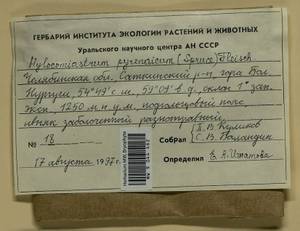 ГЕРБАРИЙ ИНСТИТУТА ЭКОЛОГИИ РАСТЕНИЙ И ЖИВОТНЫХ
Уральского научного центра АН СССР
Hylocomiastrum pyrenaicum (Spruce) Fleisch.
Челябинская обл. Саткинский р-н, гора Бол.
Нургуш, 54°49' с.ш., 59°09' в.д., склон 1° зап.
эксп. 1250 м н.у.м. подгольцовый пояс
ивняк заболоченный разнотравный.
№ 18
Собрал П.В. Куликов
С.В. Баландин
17 августа 1997 г.
Определил Е.А. Игнатова